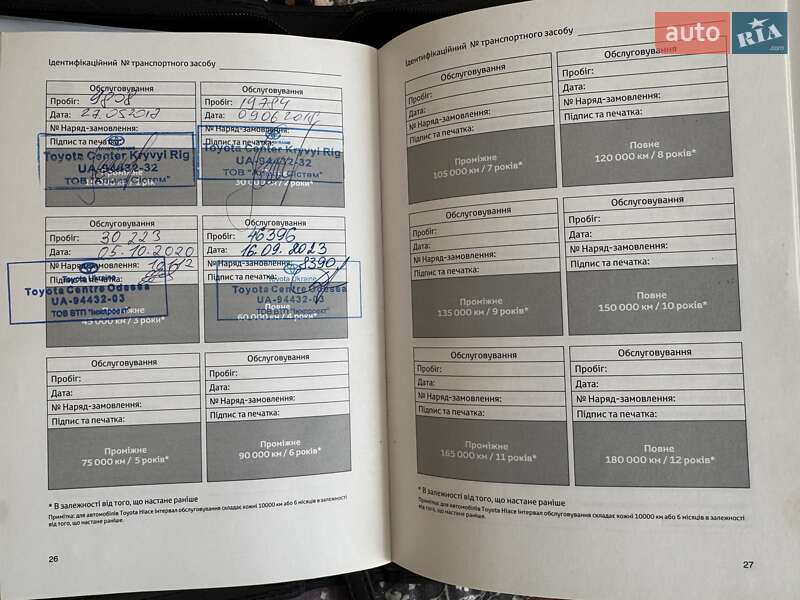 auto RIA.com
Ідентифікаційний № транспортного засобу
Обслуговування
Пробіг: 9808
Дата: 27.05.2017
№ Наряд-замовлення:
Підпис та печатка:
Toyota Center Kryvyi Rig
UA-94432-32
Обслуговування
Пробіг: 19784
Дата: 09.06.201
№ Наряд-замовлення:
Підпис та печатка:
Toyota Center Kryvyi Rig
UA-94432-32
30 000 км / 2 роки*
Обслуговування
Пробіг: 30 223
Дата: 05.10.2020
№ Наряд-замовлення:
Підпис та печатка:
Toyota Ukraine
Toyota Centre Odessa
UA-94432-03
ТОВ ВТП "Інжпроект"
45 000 км / 3 роки*
Обслуговування
Пробіг: 46396
Дата: 16.09.2023
№ Наряд-замовлення: 8390
Підпис та печатка:
Toyota Ukraine
Toyota Centre Odessa
UA-94432-03
ТОВ ВТП "Інжпроект"
Повне
60 000 км / 4 роки*
Обслуговування
Пробіг:
Дата:
№ Наряд-замовлення:
Підпис та печатка:
Проміжне
75 000 км / 5 років*
Обслуговування
Пробіг:
Дата:
№ Наряд-замовлення:
Підпис та печатка:
Повне
90 000 км / 6 років*
* В залежності від того, що настане раніше
Примітка: для автомобілів Toyota Hiace інтервал обслуговування складає кожні 10000 км або 6 місяців в залежності
від того, що настане раніше.
26
Ідентифікаційний № транспортного засобу
Обслуговування
Пробіг:
Дата:
№ Наряд-замовлення:
Підпис та печатка:
Проміжне
105 000 км / 7 років*
Обслуговування
Пробіг:
Дата:
№ Наряд-замовлення:
Підпис та печатка:
Повне
120 000 км / 8 років*
Обслуговування
Пробіг:
Дата:
№ Наряд-замовлення:
Підпис та печатка:
Проміжне
135 000 км / 9 років*
Обслуговування
Пробіг:
Дата:
№ Наряд-замовлення:
Підпис та печатка:
Повне
150 000 км / 10 років*
Обслуговування
Пробіг:
Дата:
№ Наряд-замовлення:
Підпис та печатка:
Проміжне
165 000 км / 11 років*
Обслуговування
Пробіг:
Дата:
№ Наряд-замовлення:
Підпис та печатка:
Повне
180 000 км / 12 років*
* В залежності від того, що настане раніше
Примітка: для автомобілів Toyota Hiace інтервал обслуговування складає кожні 10000 км або 6 місяців в залежності
від того, що настане раніше.
27